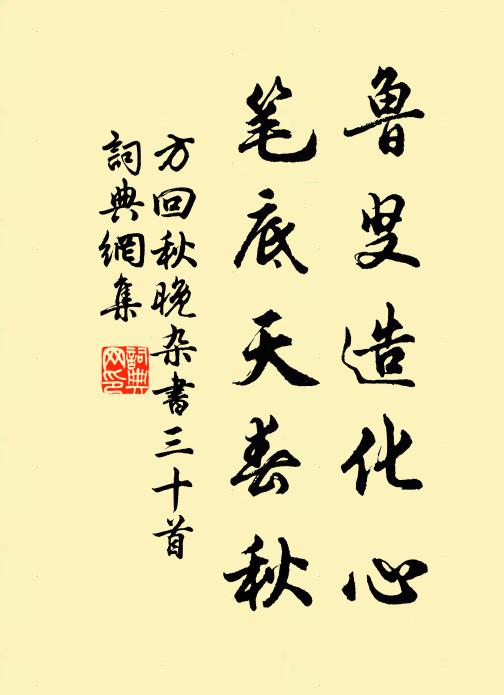 鲁叟造化心
笔底天春秋
方回秋晚杂书三十首
詞典網集
詞典网印